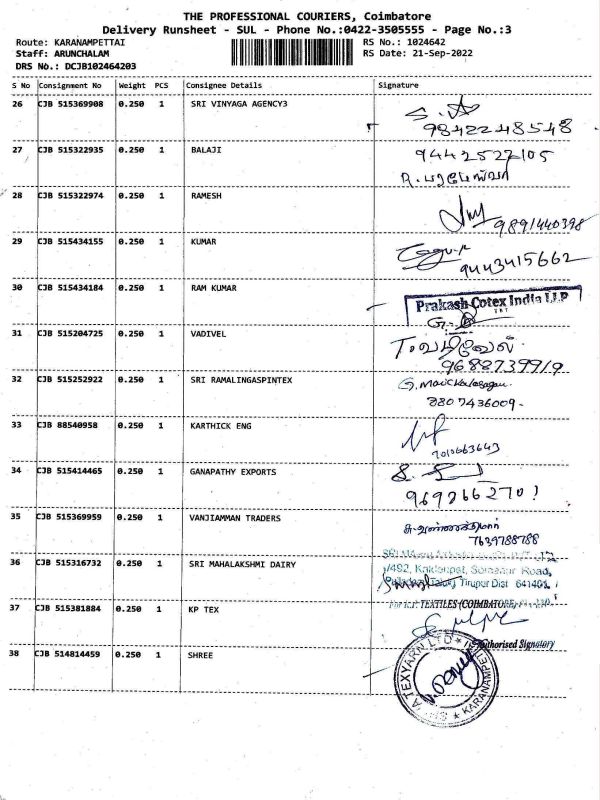 THE PROFESSIONAL COURIERS, Coimbatore
Delivery Runsheet - SUL - Phone No.:0422-3505555 - Page No.:3
Route: KARANAMPETTAI RS No.: 1024642
Staff: ARUNCHALAM RS Date: 21-Sep-2022
DRS No.: DCJB102464203
S No Consignment No Weight PCS Consignee Details Signature
26 CJB 515369908 0.250 1 SRI VINYAGA AGENCY3
9842248548
27 CJB 515322935 0.250 1 BALAJI 9442522105
28 CJB 515322974 0.250 1 RAMESH
9891440398
29 CJB 515434155 0.250 1 KUMAR
9443415662
30 CJB 515434184 0.250 1 RAM KUMAR
Prakash Cotex India LLP
31 CJB 515204725 0.250 1 VADIVEL
T. வடிவேல்
9688273919
32 CJB 515252922 0.250 1 SRI RAMALINGASPINTEX
8807436009-
33 CJB 88540958 0.250 1 KARTHICK ENG
7010663643
34 CJB 515414465 0.250 1 GANAPATHY EXPORTS
35 CJB 515369959 0.250 1 VANJIAMMAN TRADERS
7639788788
36 CJB 515316732 0.250 1 SRI MAHALAKSHMI DAIRY
Road,
Tirupur Dist 641401
37 CJB 515381884 0.250 1 KP TEX
TEXTILES (COIMBATORE)
Authorised Signatory
38 CJB 514814459 0.250 1 SHREE